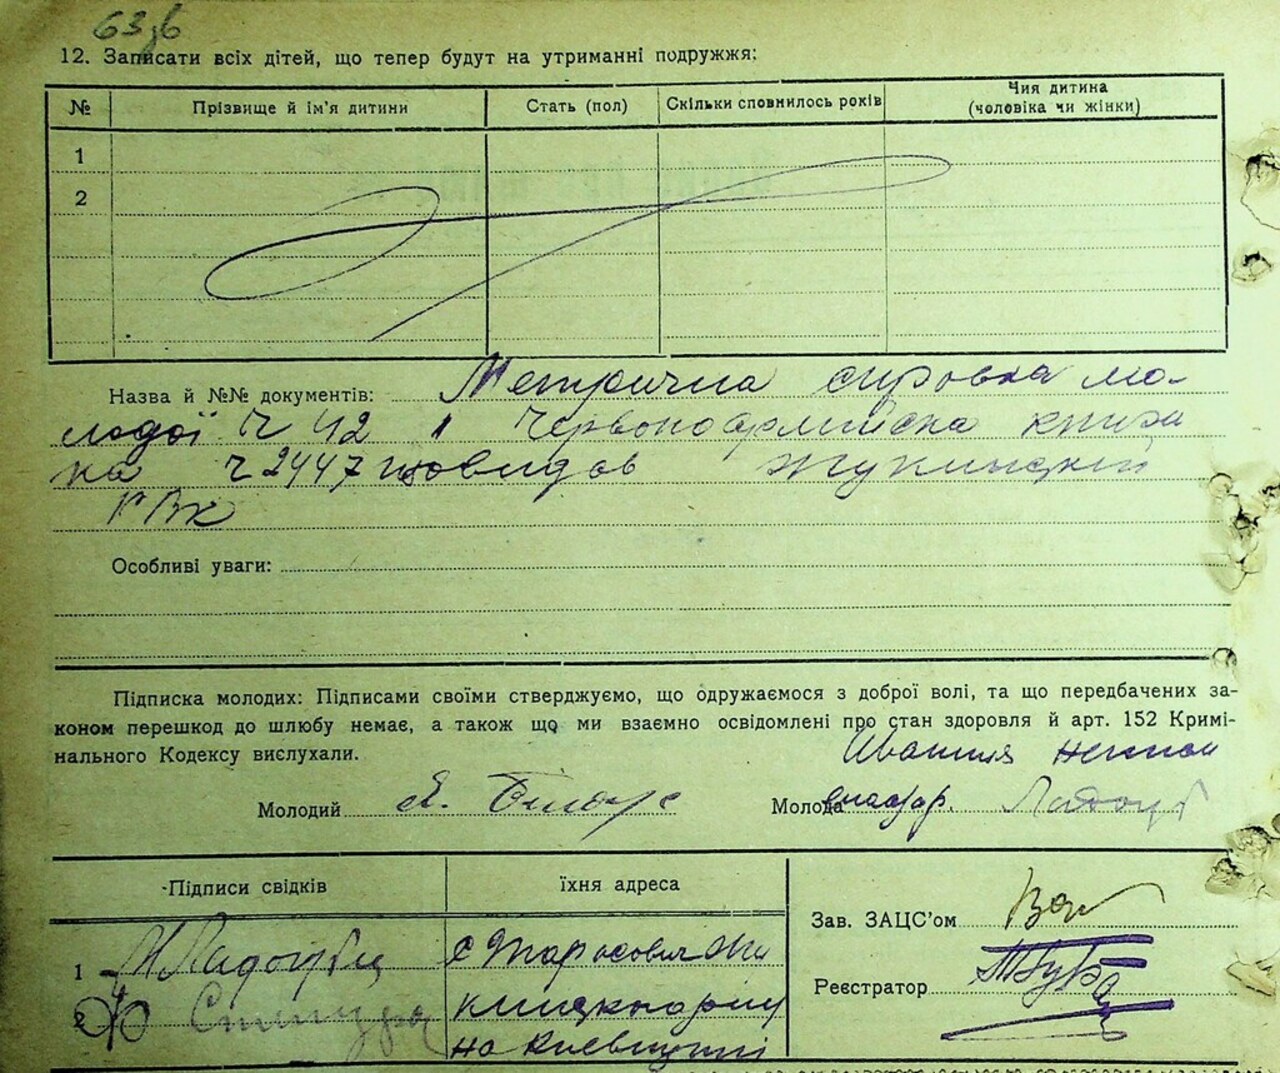 63зб
12. Записати всіх дітей, що тепер будут на утриманні подружжя:
№ Прізвище й ім'я дитини Стать (пол) Скільки сповнилось років Чия дитина (чоловіка чи жінки)
1
2
Назва й №№ документів: Метрична справка мо-
лодої Ч 42 і Червоноармійска книж
ка Ч 2447
РВК
Особливі уваги:
Підписка молодих: Підписами своїми стверджуємо, що одружаємося з доброї волі, та що передбачених за-
коном перешкод до шлюбу немає, а також що ми взаємно освідомлені про стан здоровля й арт. 152 Кримі-
нального Кодексу вислухали.
Молодий Молода
Підписи свідків їхня адреса
Зав. ЗАЦС'ом
1 с Тарасовка
Реєстратор
2
на Київщині